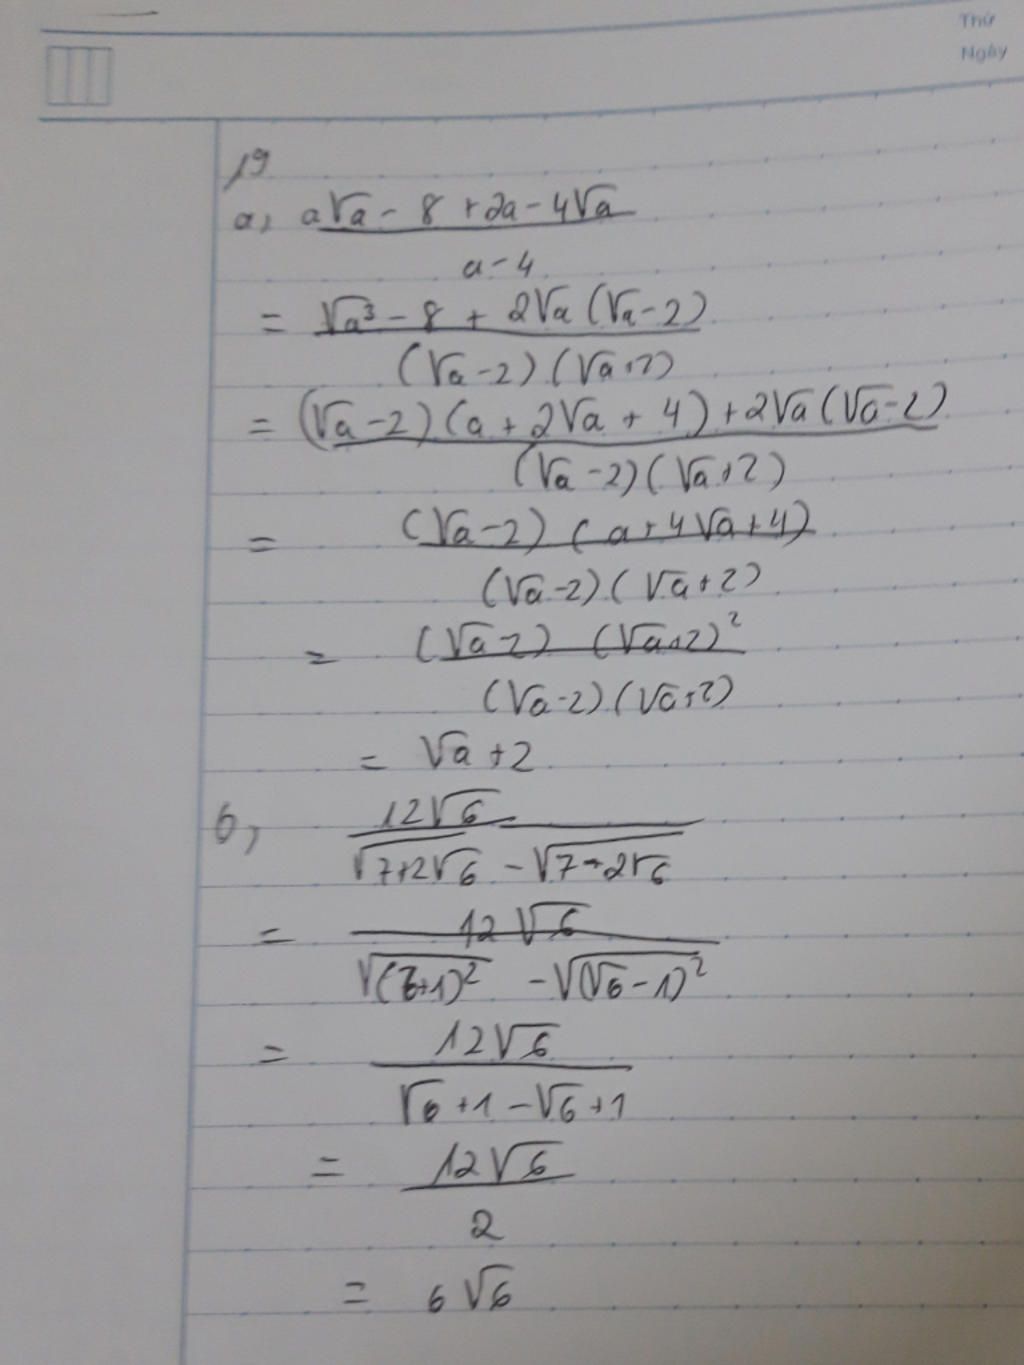 Thứ
Ngày
19
a, (a√a - 8 + 2a - 4√a) / (a - 4)
= (√a³ - 8 + 2√a (√a - 2)) / ((√a - 2) (√a + 2))
= ((√a - 2) (a + 2√a + 4) + 2√a (√a - 2)) / ((√a - 2) (√a + 2))
= ((√a - 2) (a + 4√a + 4)) / ((√a - 2) (√a + 2))
= ((√a - 2) (√a + 2)²) / ((√a - 2) (√a + 2))
= √a + 2
b, 12√6 / (√(7 + 2√6) - √(7 - 2√6))
= 12√6 / (√(√6 + 1)² - √(√6 - 1)²)
= 12√6 / (√6 + 1 - √6 + 1)
= 12√6 / 2
= 6√6